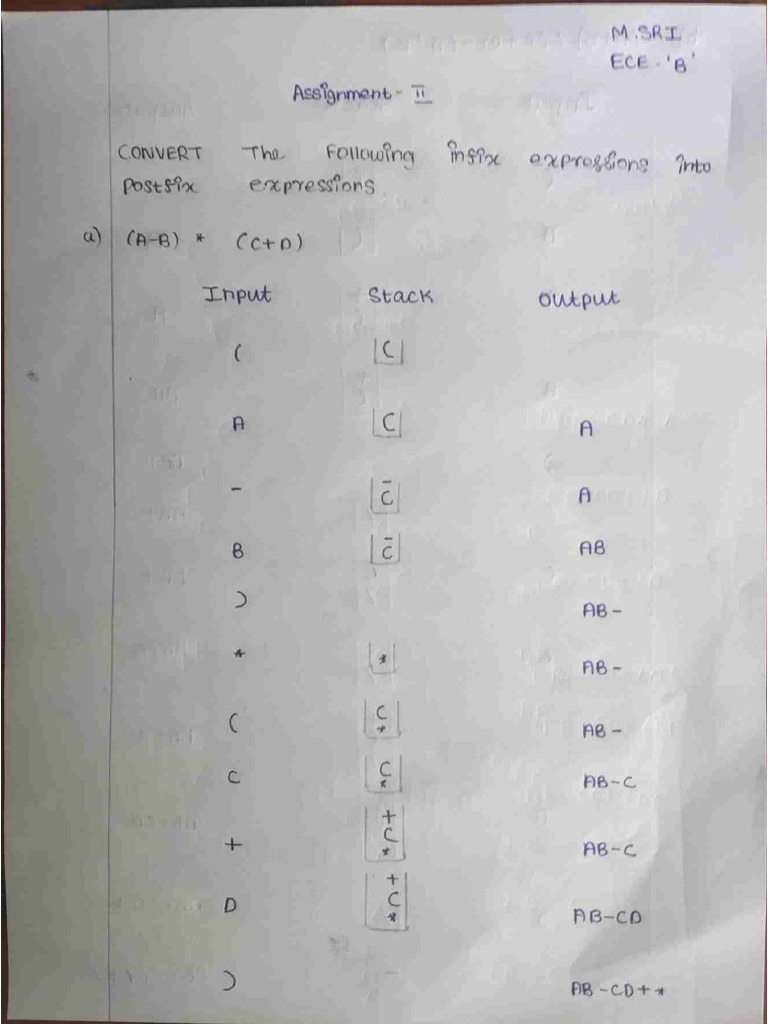 M.SRI
ECE-'B'
Assignment - II
CONVERT The Following infix expressions into
Postfix expressions
a) (A-B) * (C+D)
Input Stack Output
( (
A ( A
- - ( A
B - ( AB
) AB-
* * AB-
( ( * AB-
C ( * AB-C
+ + ( * AB-C
D + ( * AB-CD
) AB-CD+*